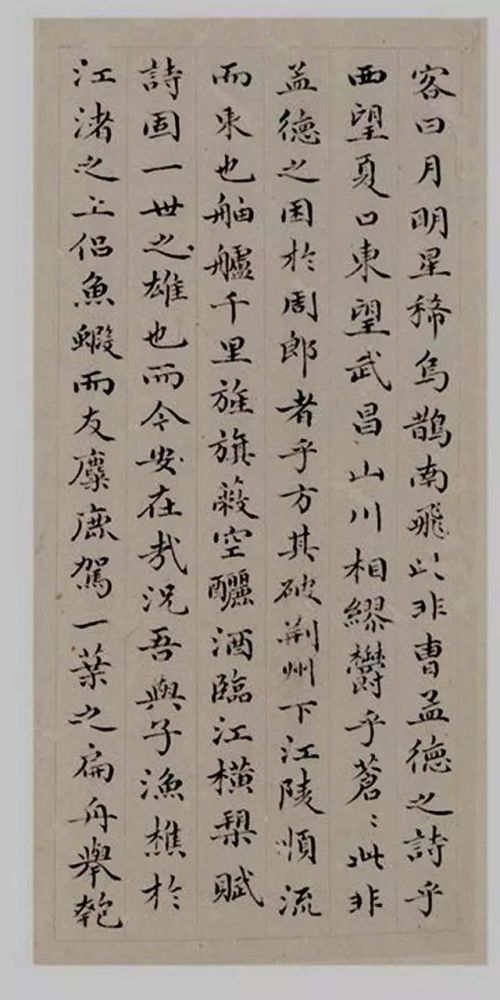 客曰月明星稀烏鵲南飛此非曹孟德之詩乎
西望夏口東望武昌山川相繆鬱乎蒼〻此非
孟德之困於周郎者乎方其破荆州下江陵順流
而東也舳艫千里旌旗蔽空釃酒臨江橫槊賦
詩固一世之雄也而今安在哉況吾與子漁樵於
江渚之上侣魚蝦而友麋鹿駕一葉之扁舟舉匏